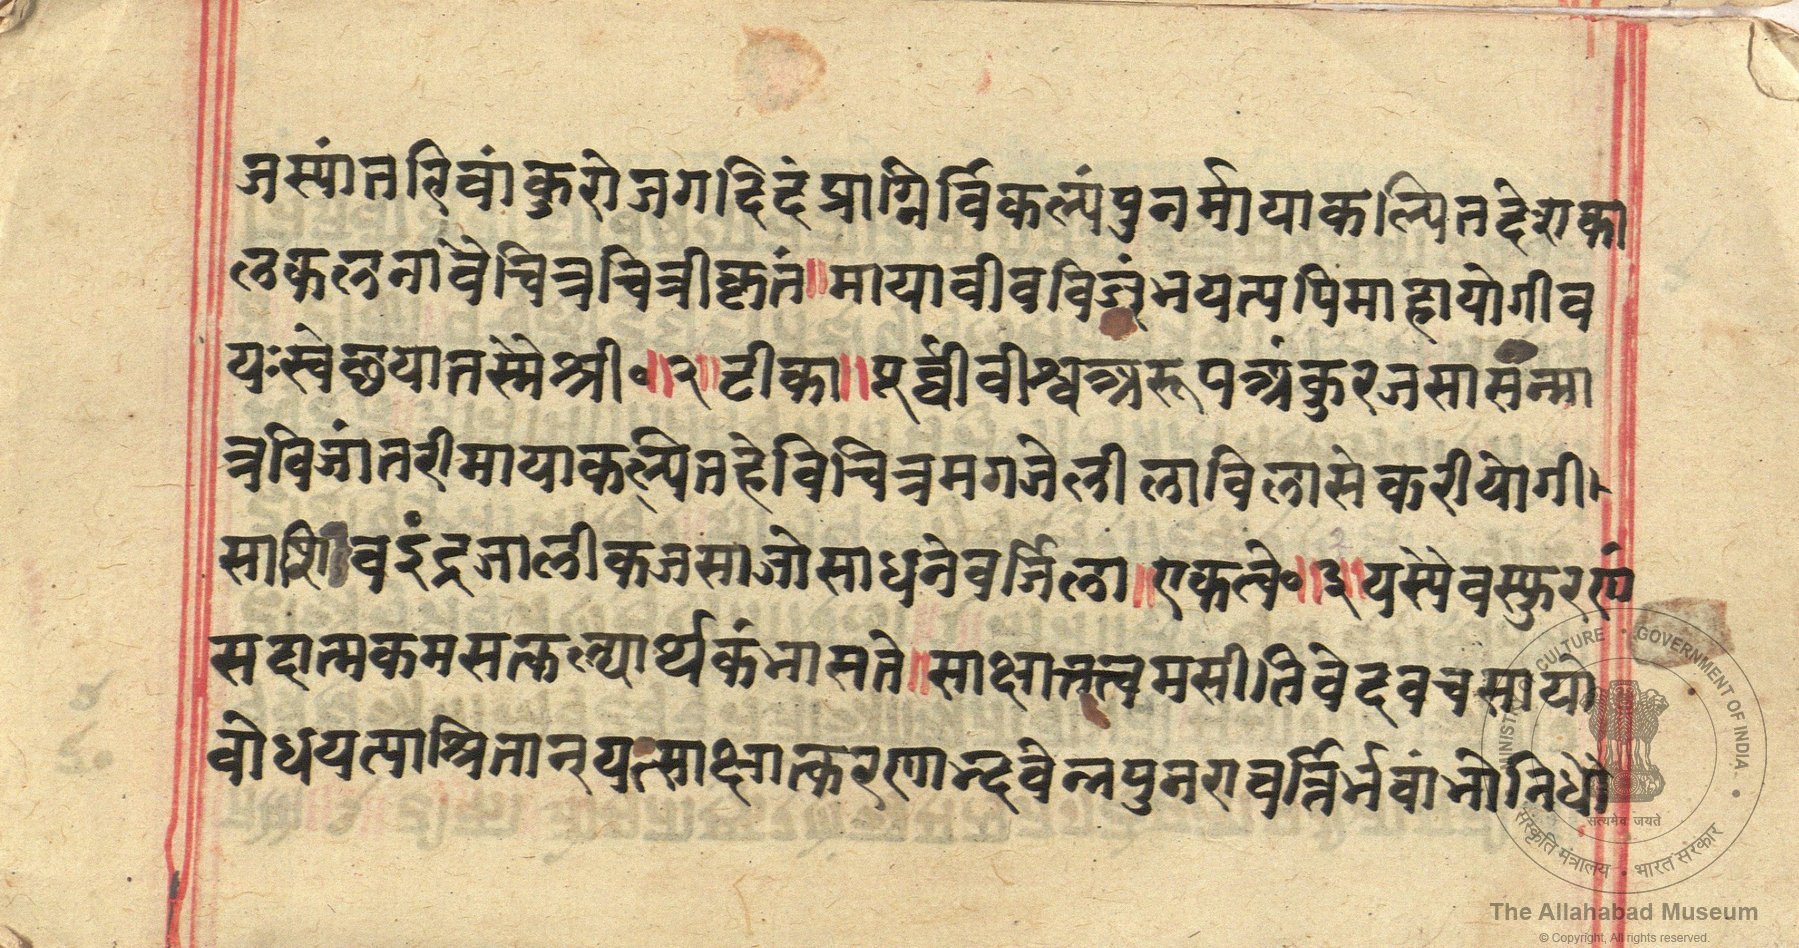 जस्यांतरिवांकुरोजगदिदंप्राग्निर्विकल्पंपुनर्मायाकल्पितदेशका
लकलनावैचित्रचित्रीकृतं॥मायावीवविजृंभयत्यपिमाहायोगीव
यःस्वेछयातस्मैश्री॰॥२॥टीका॥पूर्वीवीश्वअरूपअंकुरजसासन्मा
त्रविजांतरीमायाकल्पितहेविचित्रमगजेलीलाविलासेकरीयोगी
साशिवइंद्रजालीकजसाजोसाधनेवर्जिला॥एकत्वे॰॥३॥यस्यैवस्फुरणं
सदात्मकमसत्कल्पार्थकंभासते॥साक्षात्तत्वमसीतिवेदवचसायो
बोधयत्याश्रितान्यत्साक्षात्करणान्द्रवेन्नपुनरावर्त्तिर्भवांभोनिधौ
सत्यमेव जयते
MINISTRY OF CULTURE • GOVERNMENT OF INDIA •
संस्कृति मंत्रालय • भारत सरकार
The Allahabad Museum
© Copyright, All rights reserved.